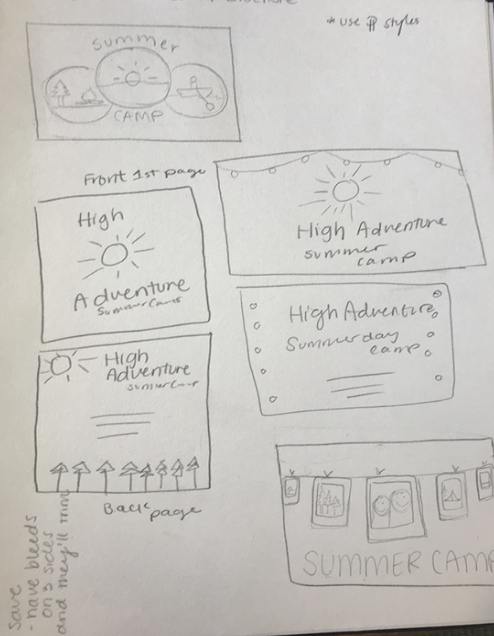 Brochure
* use ¶ styles
summer
CAMP
Front 1st page
High
Adventure
Summer Camp
High Adventure
summer
camp
High
Adventure
summer camp
High Adventure
Summer day
camp
Back page
SUMMER CAMP
Save
- have bleeds
on 3 sides
and they'll trim